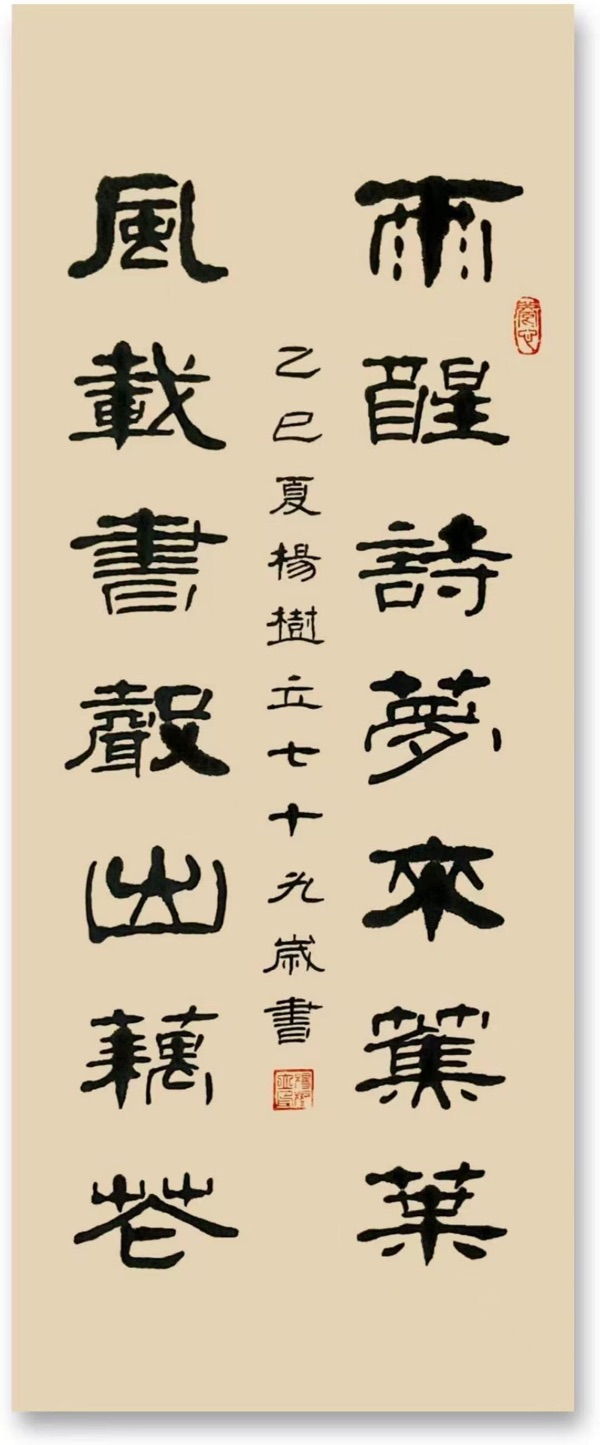 雨醒詩夢來蕉葉
乙巳夏楊樹立七十九歲書
風載書聲出藕花